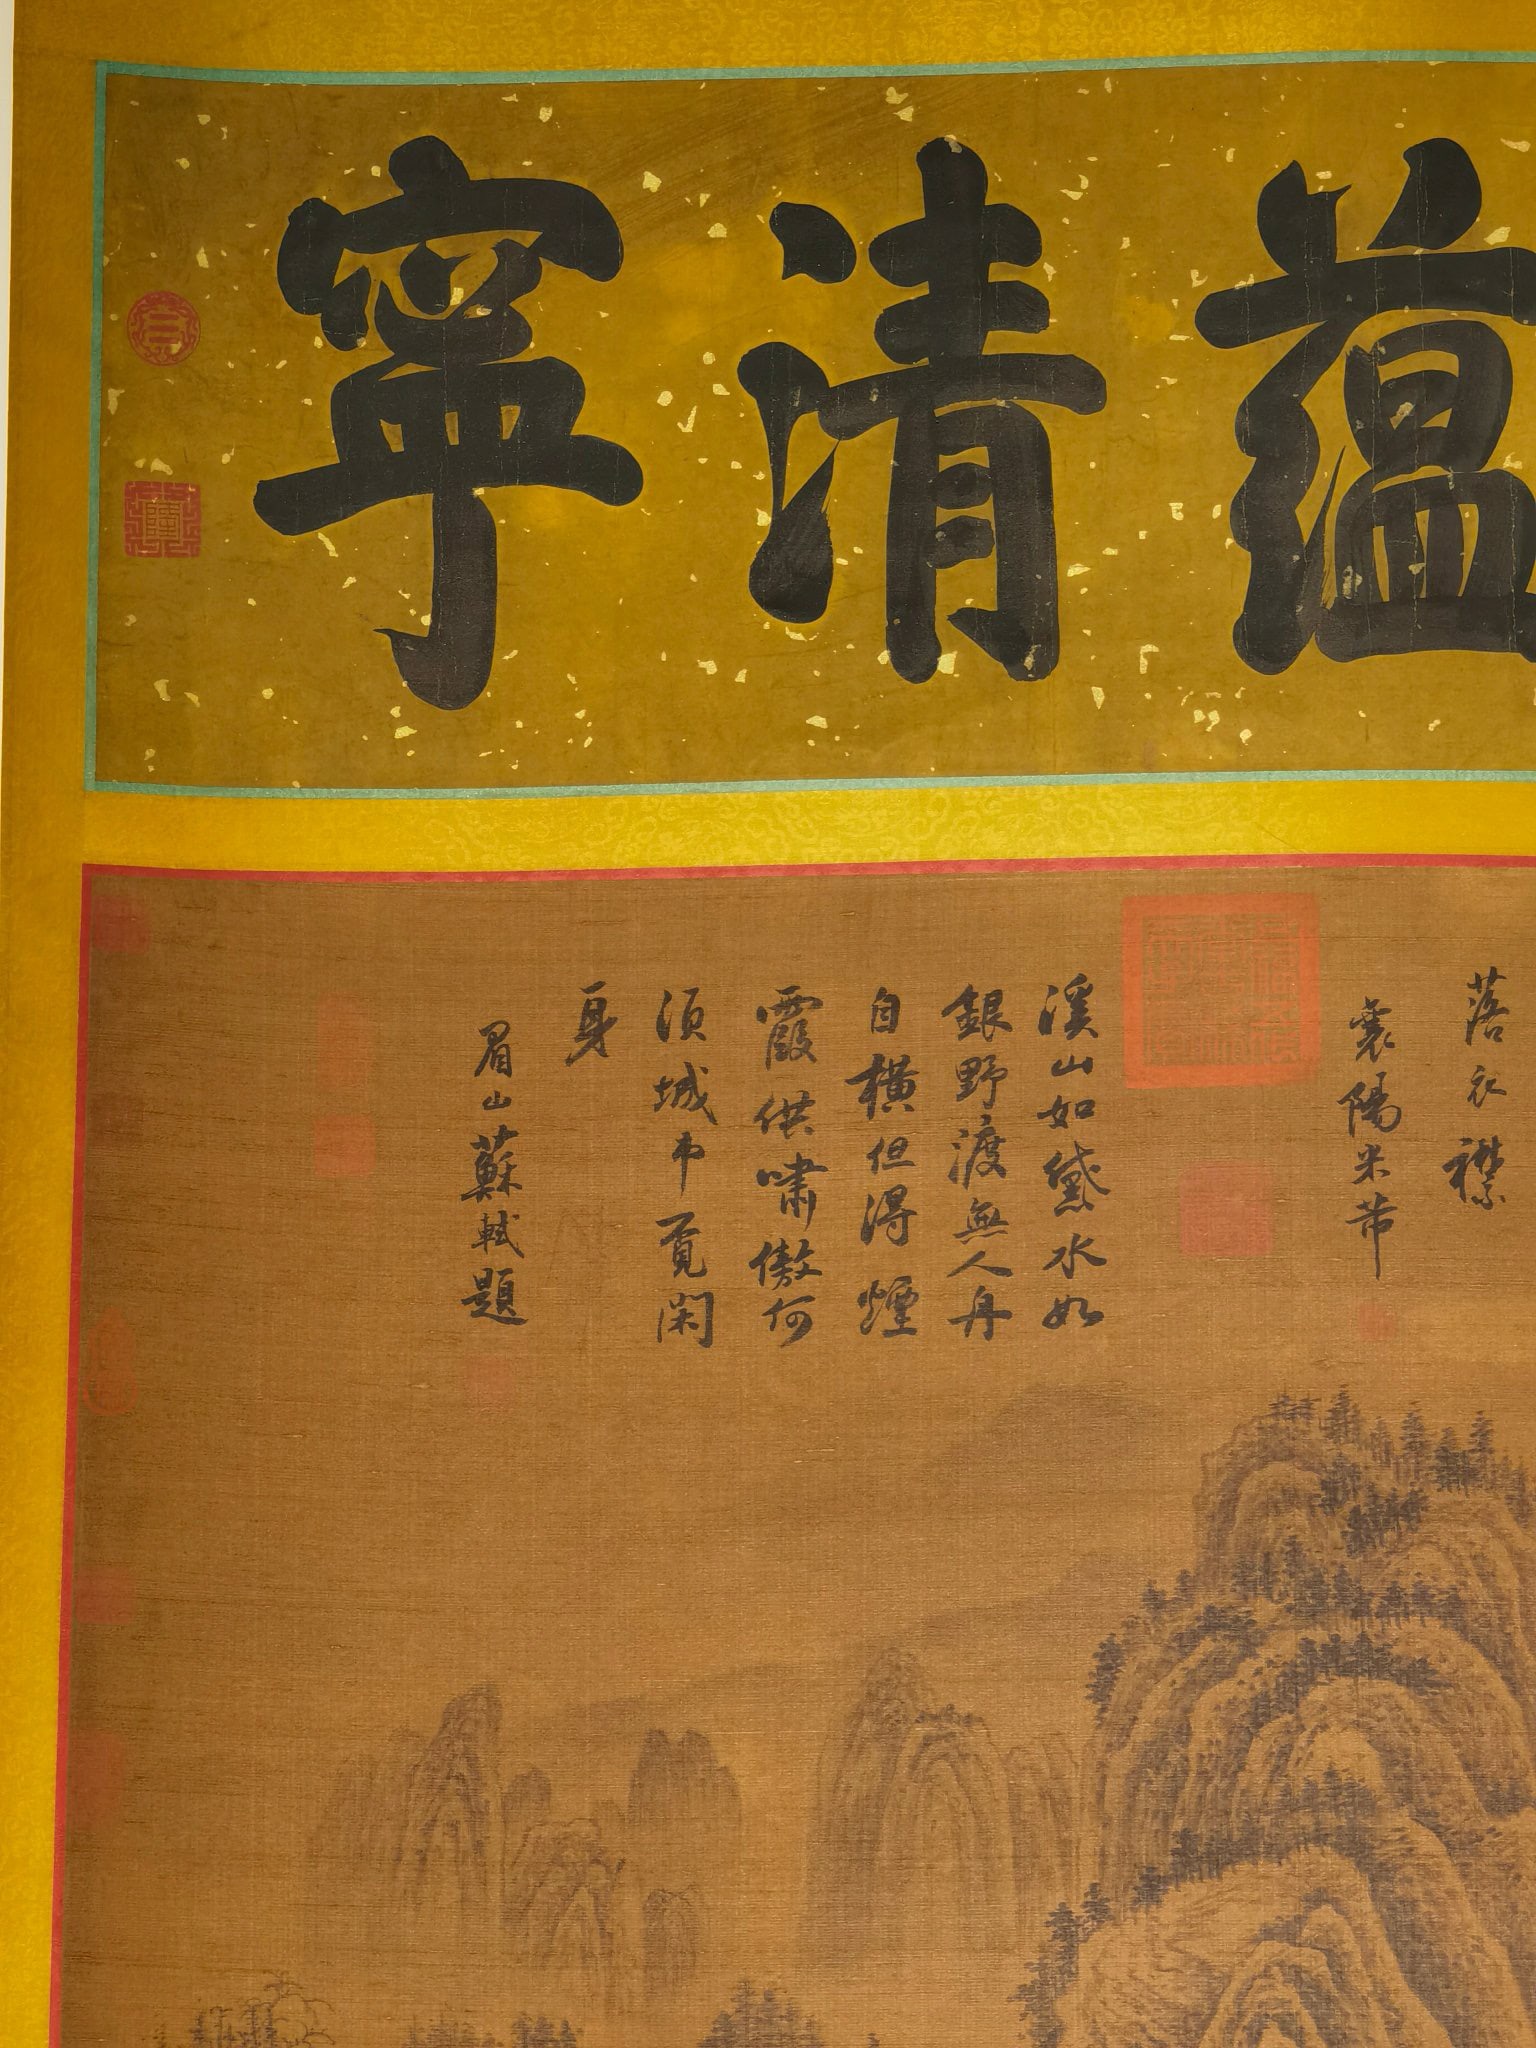 蘊清寧
落衣襟
襄陽米芾
溪山如黛水如
銀野渡無人舟
自橫但得煙
霞供嘯傲何
須城市覓閑
身
眉山蘇軾題